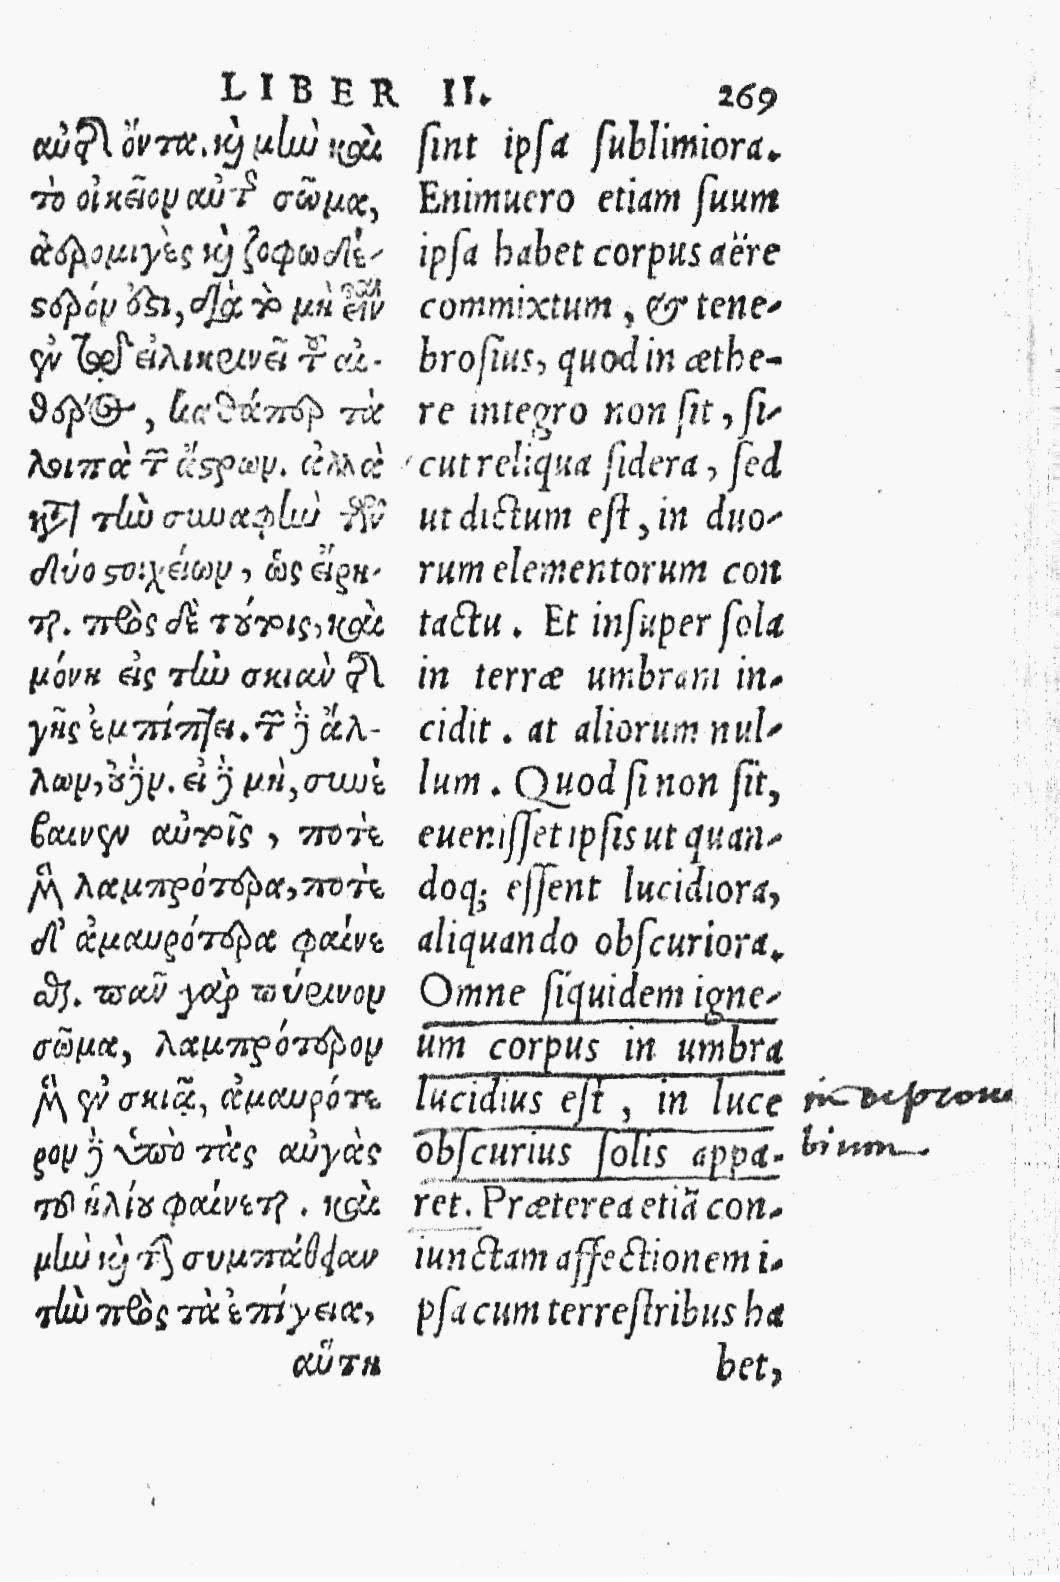 LIBER II. 269
αὐτῆς ὄντα. καὶ μὴν καὶ
τὸ οἰκεῖον αὐτῆς σῶμα,
ἀερομιγὲς καὶ ζοφωδέ-
στερόν ἐστι, διὰ τὸ μὴ εἶναι
ἐν τῷ εἰλικρινεῖ τοῦ αἰ-
θέρος, καθάπερ τὰ
λοιπὰ τῶν ἄστρων. ἀλλὰ
κατὰ τὴν συναφὴν τῶν
δύο στοιχείων, ὡς εἴρη-
ται. πρὸς δὲ τούτοις, καὶ
μόνη εἰς τὴν σκιὰν τῆς
γῆς ἐμπίπτει. τῶν δὲ ἄλ-
λων, οὐδέν. εἰ δὲ μὴ, συνέ
βαινεν αὐτοῖς, ποτὲ
μὲν λαμπρότερα, ποτὲ
δ' ἀμαυρότερα φαίνε
σθαι. πᾶν γὰρ πύρινον
σῶμα, λαμπρότερον
μὲν ἐν σκιᾷ, ἀμαυρότε
ρον δὲ ὑπὸ τὰς αὐγὰς
τοῦ ἡλίου φαίνεται. καὶ
μὴν καὶ τὴν συμπάθειαν
τὴν πρὸς τὰ ἐπίγεια,
αὕτη
ſint ipſa ſublimiora.
Enimuero etiam ſuum
ipſa habet corpus aëre
commixtum, & tene-
broſius, quod in æthe-
re integro non ſit, ſi-
cut reliqua ſidera, ſed
ut dictum eſt, in duo-
rum elementorum con
tactu. Et inſuper ſola
in terræ umbram in-
cidit. at aliorum nul-
lum. Quod ſi non ſit,
eueniſſet ipſis ut quan-
doq; eſſent lucidiora,
aliquando obſcuriora.
Omne ſiquidem igne-
um corpus in umbra
lucidius eſt, in luce
obſcurius ſolis appa-
ret. Præterea etiã con-
iunctam affectionem i-
pſa cum terreſtribus ha
bet,